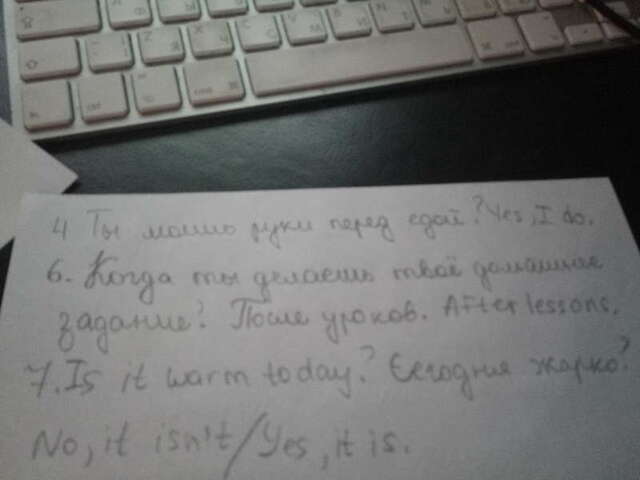 4 Ты моешь руки перед едой? Yes, I do.
6. Когда ты делаешь твоё домашнее
задание? После уроков. After lessons.
7. Is it warm today? Сегодня жарко?
No, it isn't/Yes, it is.